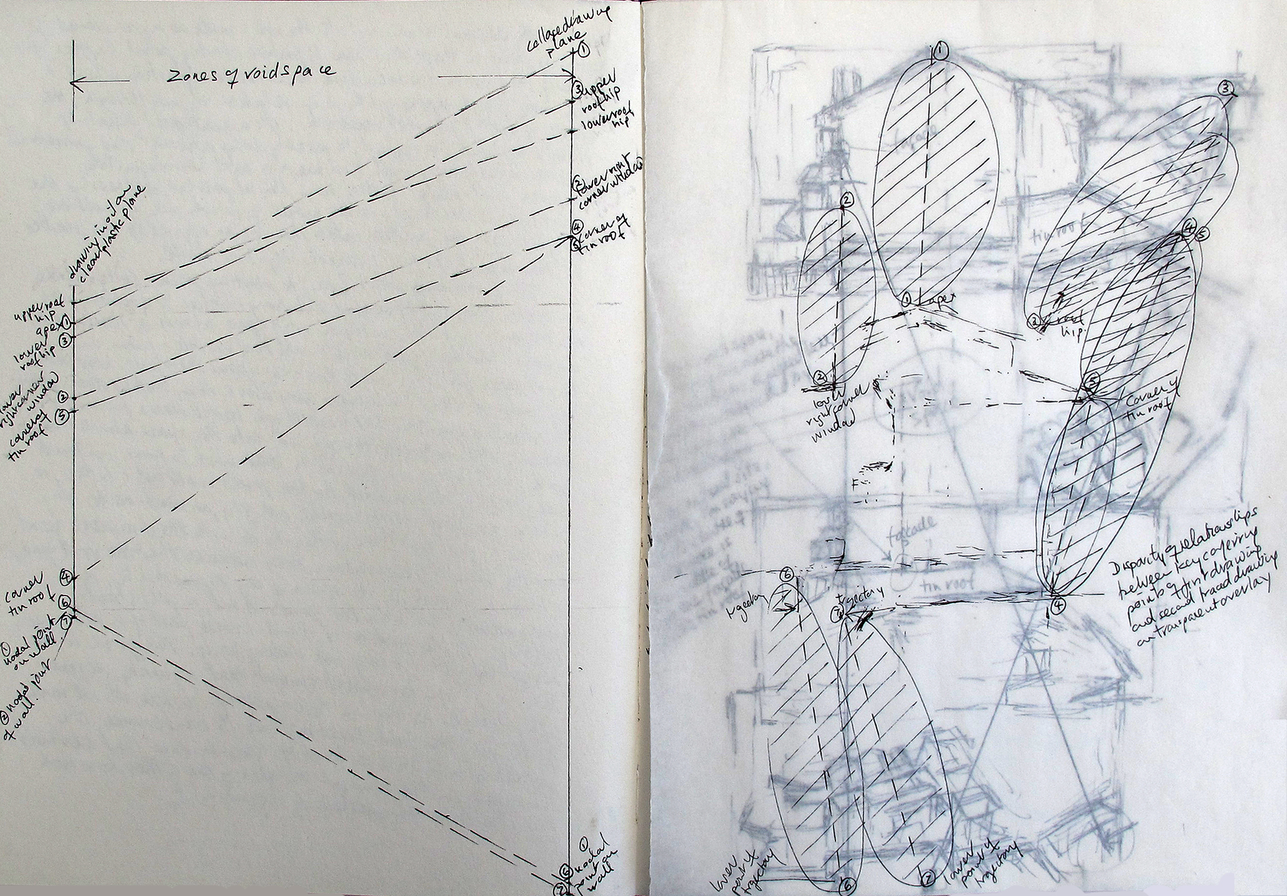 Zones of void space
collaged drawing
plane
①
③ upper
roof hip
lower roof
hip
② lower right
corner window
④
⑤ corner of
tin roof
drawing in oil on
clear plastic plane
upper roof
hip
apex ①
lower ③
roof hip
lower
right corner
window ②
corner of ⑤
tin roof
corner ④
tin roof
⑥
① nodal point
on wall ⑦
② nodal point
of wall.
⑥ ①
nodal
point on
wall
⑦
①
façade
③
②
tin roof
④ ⑤
① apex
③ roof
hip
②
lower
right corner
window
⑤
corner of
tin roof
façade
tin roof
④
Disparity of relationships
between key cohering
points of first drawing
and second traced drawing
on transparent overlay
⑥
trajectory
⑦ trajectory
lower
point of
trajectory
⑥
⑦
lower
point of
trajectory